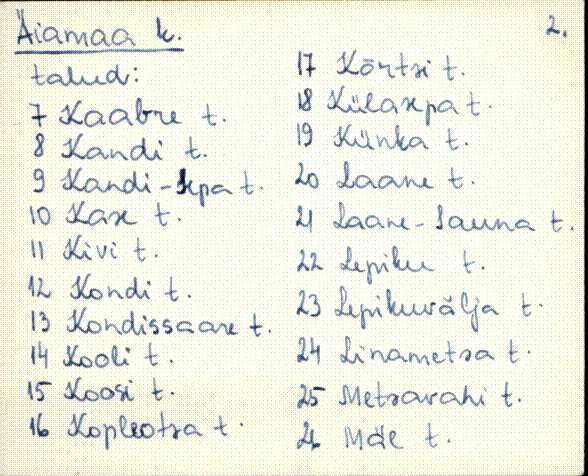 Äiamaa k.
2.
talud:
7 Kaabre t.
8 Kandi t.
9 Kandi-Sepa t.
10 Kase t.
11 Kivi t.
12 Kondi t.
13 Kondissaare t.
14 Kooli t.
15 Koosi t.
16 Kopleotsa t.
17 Kõrtsi t.
18 Külasepa t.
19 Künka t.
20 Laane t.
21 Laane-Sauna t.
22 Lepiku t.
23 Lepikuvälja t.
24 Linametsa t.
25 Metsavahi t.
26 Mäe t.